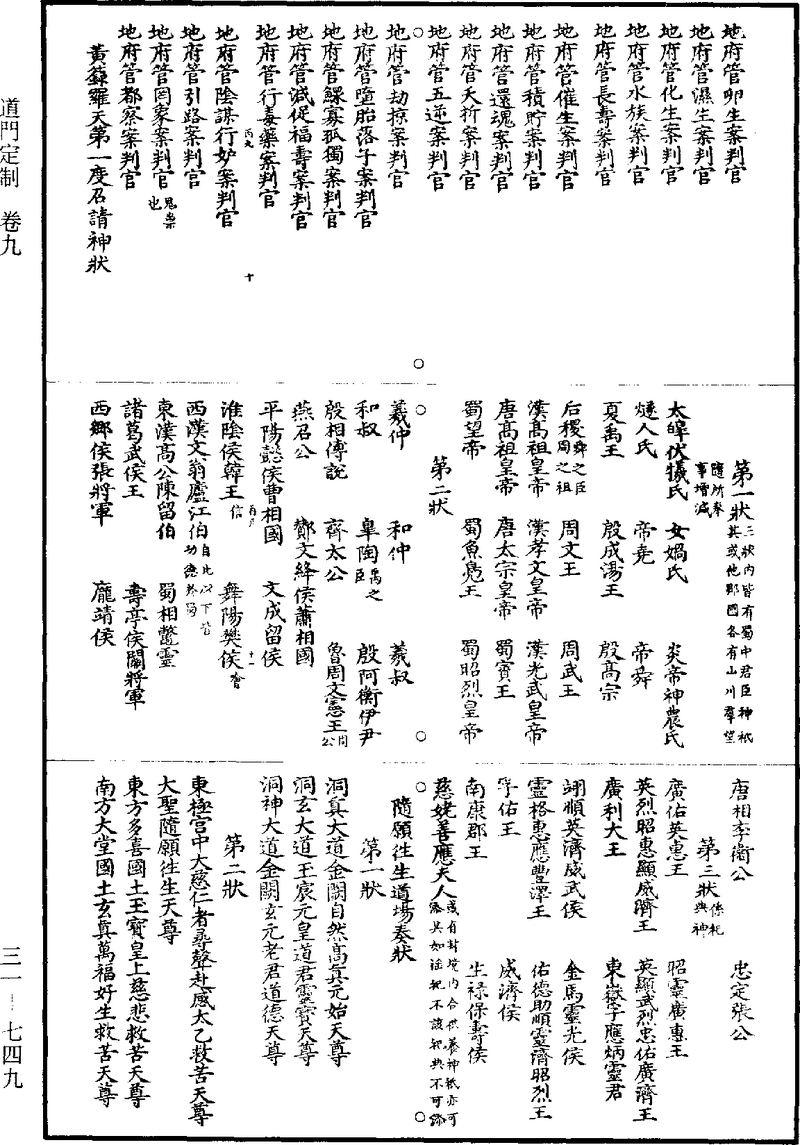 地府管卵生案判官
地府管濕生案判官
地府管化生案判官
地府管水族案判官
地府管長壽案判官
地府管催生案判官
地府管積貯案判官
地府管還魂案判官
地府管夭折案判官
地府管五逆案判官
地府管劫掠案判官
地府管墮胎落子案判官
地府管鰥寡孤獨案判官
地府管減促福壽案判官
地府管行毒藥案判官
丙九
十
地府管陰謀行妒案判官
地府管引路案判官
地府管囚案判官
地府管都察案判官
黃籙羅天第一度召請神狀
第一狀三狀內皆有蜀中君臣神祇其或他郡國各有山川羣望隨所奏事增減
太皥伏犧氏 女媧氏 炎帝神農氏
燧人氏 帝堯 帝舜
夏禹王 殷成湯王 殷高宗
后稷舜之臣周之祖 周文王 周武王
漢高祖皇帝 漢孝文皇帝 漢光武皇帝
唐高祖皇帝 唐太宗皇帝 蜀賨王
蜀望帝 蜀魚鳧王 蜀昭烈皇帝
第二狀
羲仲 和仲 羲叔
和叔 皐陶禹之臣 殷阿衡伊尹
殷相傅說 齊太公 魯周文憲王周公
燕召公 酇文終侯蕭相國
平陽懿侯曹相國 文成留侯
十一
淮陰侯韓王信 舞陽樊侯噲
西漢文翁廬江伯自此以下皆功德於蜀
東漢高公陳留伯 蜀相鼈靈
諸葛武侯王 壽亭侯關將軍
西鄉侯張將軍 龐靖侯
唐相李衛公 忠定張公
第三狀係祀典神
廣佑英惠王 昭靈廣惠王
英烈昭惠顯威濟王 英顯武烈忠佑廣濟王
廣利大王 東嶽子應炳靈君
翊順英濟威武侯 金馬靈光侯
靈格惠應豐澤王 佑德助順靈濟昭烈王
孚佑王 威濟侯
南康郡王 生祿保壽侯
慈姥善應夫人或有封境內合供養神祇亦可添具如淫祀不該祀典不可添
隨願往生道場奏狀
第一狀
洞真大道金闕自然高真元始天尊
洞玄大道玉宸元皇道君靈寶天尊
洞神大道金闕玄元老君道德天尊
第二狀
東極宮中大慈仁者尋聲赴感太乙救苦天尊
大聖隨願往生天尊
東方多喜國土玉寶皇上慈悲救苦天尊
南方大堂國土玄真萬福好生救苦天尊
道門定制 卷九
三一—七四九